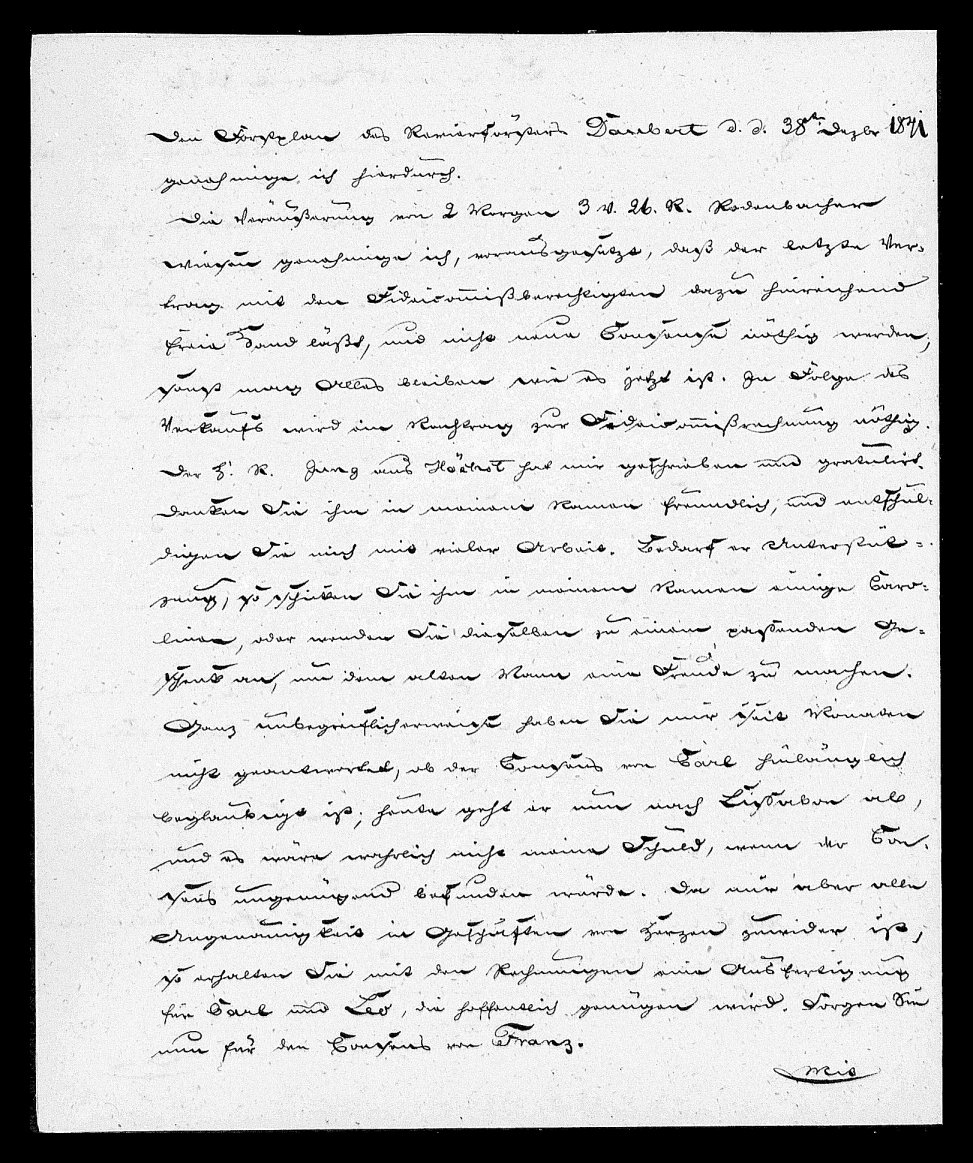 Den Forstplan des Revierförsters Daubert d. d. 38ten Dezbr 1841
genehmige ich hierdurch.
Die Veräußerung von 2 Morgen 3 v. 26. R. Rodenbacher
Wiesen genehmige ich, vorausgesetzt, daß der letzte Ver-
trag mit den Fideicommißberechtigten dazu hinreichend
freie Hand läßt, und nicht neue Consense nöthig werden,
sonst mag Alles bleiben wie es jetzt ist. In Folge des
Verkaufs wird ein Nachtrag zur Fideicommißrechnung nöthig.
Der H. R. Jung aus Höchst hat mir geschrieben und gratulirt.
Danken Sie ihm in meinem Namen freundlich, und entschul-
digen Sie mich mit vieler Arbeit. Bedarf er Unterstüt-
zung, so schicken Sie ihm in meinem Namen einige Caro-
linen, oder wenden Sie dieselben zu einem passenden Ge-
schenk an, um dem alten Mann eine Freude zu machen.
Ganz unbegreiflicherweise haben Sie mir seit Monaten
nicht geantwortet, ob der Consens von Carl hinlänglich
beglaubigt ist; heute geht er nun nach Lissabon ab,
und es wäre wahrlich nicht meine Schuld, wenn der Con-
sens ungenügend befunden würde. Da mir aber alle
Ungenauigkeit in Geschäften von Herzen zuwider ist,
so erhalten Sie mit den Rechnungen eine Ausfertigung
für Carl und Leo, die hoffentlich genügen wird. Sorgen Sie
nun für den Consens von Franz.